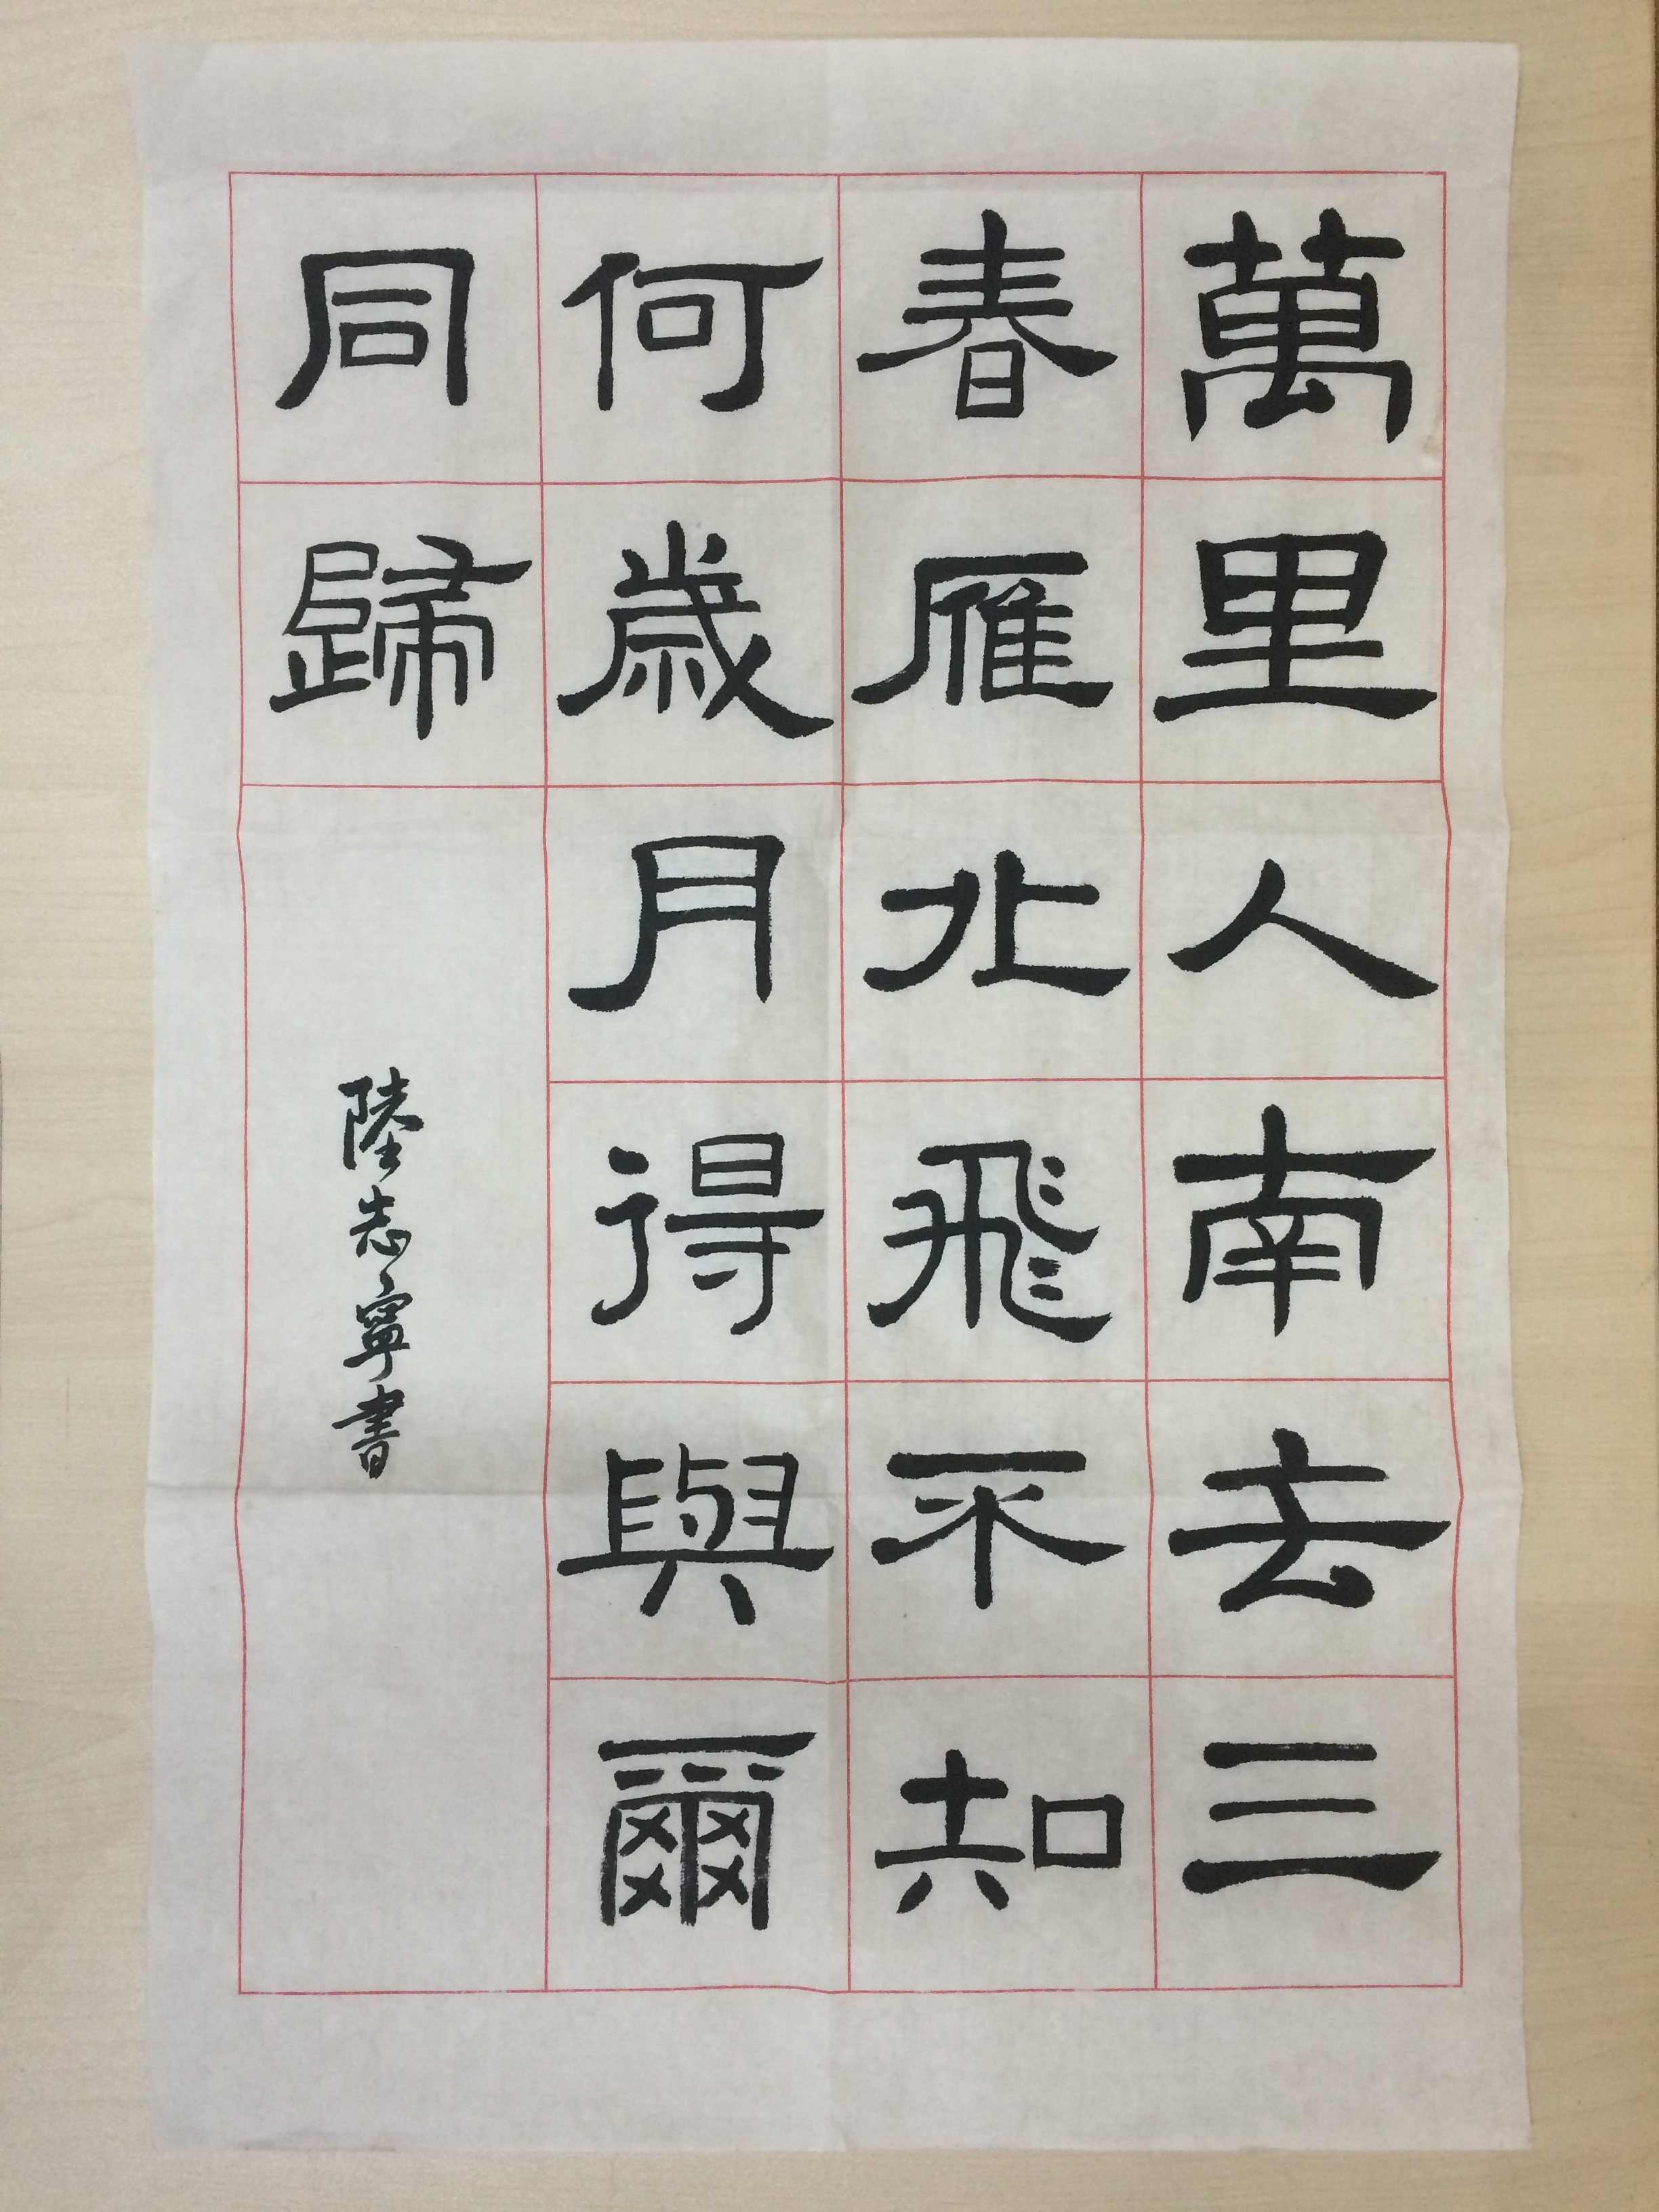 萬里人南去三
春雁北飛不知
何歲月得與爾
同歸
陸志寧書